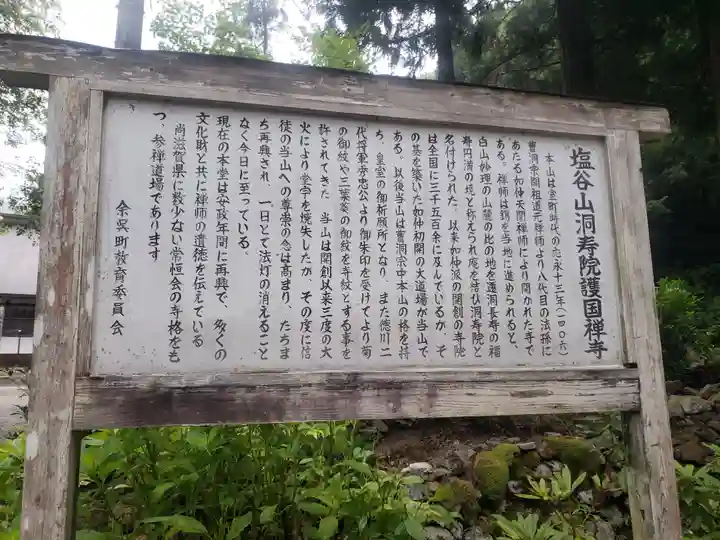 塩谷山洞寿院護国禅寺
本山は室町時代の応永十三年(一四〇六)
曹洞宗開祖道元禅師より八代目の法孫に
あたる如仲天誾禅師により開かれた寺で
ある。禅師は錫を当地に進められると、
白山妙理の山麓の此の地を蓬洞長寿の福
寿円満の境と称えられ庵を結び洞寿院と
名付けられた。以来如仲派の開創の寺院
は全国に三千五百余に及んでいるが、そ
の基を築いた如仲初開の大道場が当山で
ある。以後当山は曹洞宗中本山の格を持
ち、皇室の御祈願所となり、また徳川二
代将軍秀忠公より御朱印を受けてより菊
の御紋や三葉葵の御紋を寺紋とする事を
許されてきた 当山は開創以来三度の大
火により堂宇を焼失したが、その度に信
徒の当山への尊崇の念は高まり、たちま
ち再興され、一日とて法灯の消えること
なく今日に至っている。
現在の本堂は安政年間に再興で、多くの
文化財と共に禅師の遺徳を伝えている
尚滋賀県に数少ない常恒会の寺格をも
つ、参禅道場であります
余呉町教育委員会